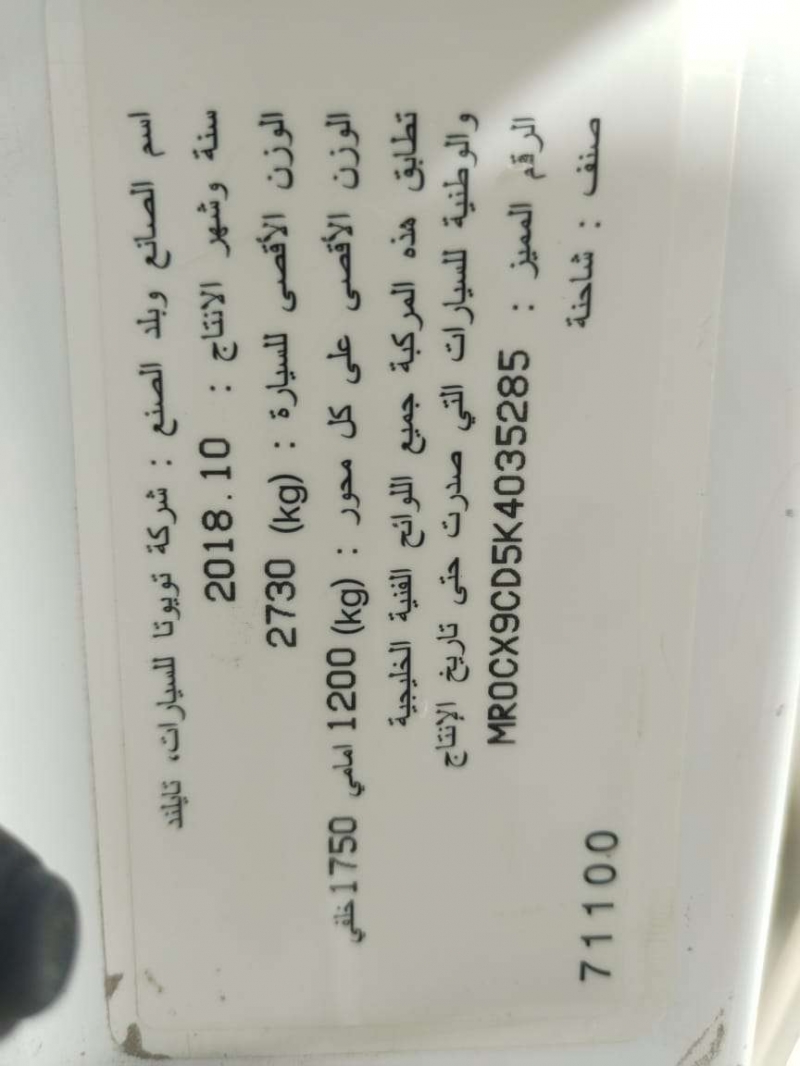 اسم الصانع وبلد الصنع : شركة تويوتا للسيارات، تايلند
سنة وشهر الانتاج : 2018.10
الوزن الأقصى للسيارة : 2730 (kg)
الوزن الأقصى على كل محور : 1200 (kg) امامي 1750 خلفي
تطابق هذه المركبة جميع اللوائح الفنية الخليجية
والوطنية للسيارات التي صدرت حتى تاريخ الإنتاج
الرقم المميز : MR0CX9CD5K4035285
صنف : شاحنة
71100